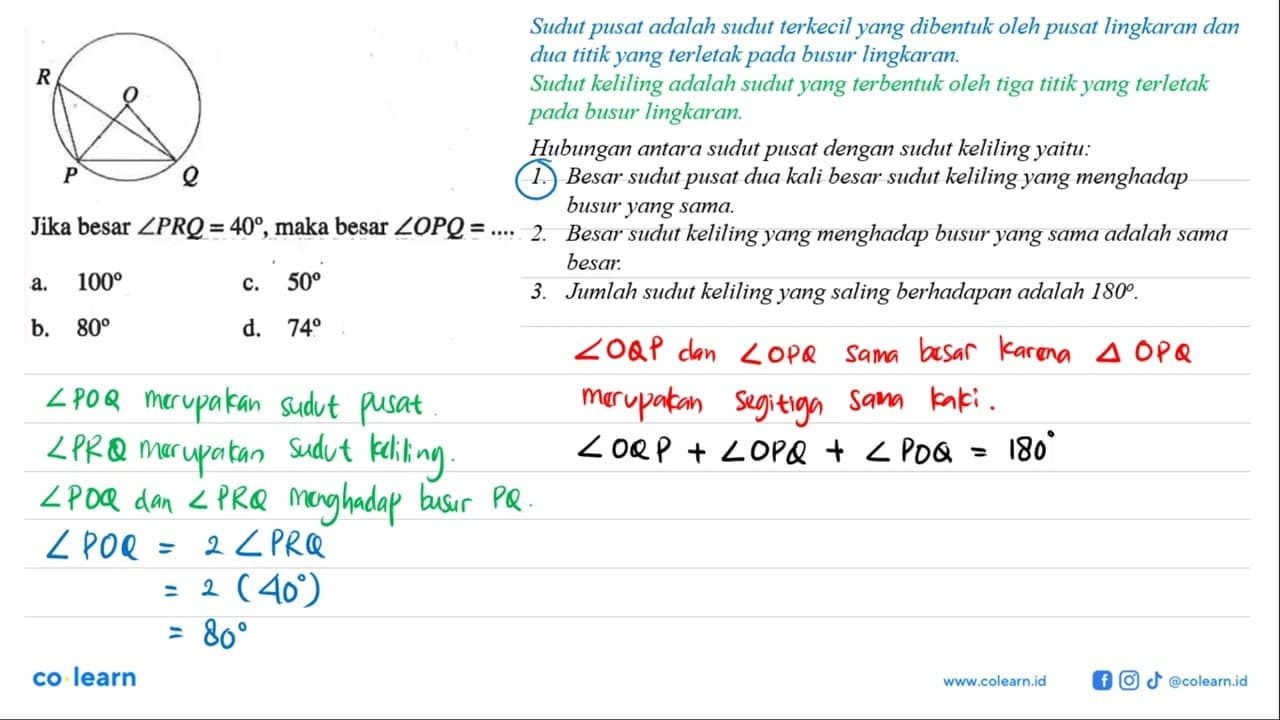 R
O
P
Q
Jika besar ∠PRQ = 40°, maka besar ∠OPQ = ....
a. 100° c. 50°
b. 80° d. 74°
Sudut pusat adalah sudut terkecil yang dibentuk oleh pusat lingkaran dan
dua titik yang terletak pada busur lingkaran.
Sudut keliling adalah sudut yang terbentuk oleh tiga titik yang terletak
pada busur lingkaran.
Hubungan antara sudut pusat dengan sudut keliling yaitu:
1. Besar sudut pusat dua kali besar sudut keliling yang menghadap
busur yang sama.
2. Besar sudut keliling yang menghadap busur yang sama adalah sama
besar.
3. Jumlah sudut keliling yang saling berhadapan adalah 180°.
∠POQ merupakan sudut pusat.
∠PRQ merupakan sudut keliling.
∠POQ dan ∠PRQ menghadap busur PQ.
∠POQ = 2 ∠PRQ
= 2 (40°)
= 80°
∠OQP dan ∠OPQ sama besar karena △ OPQ
merupakan segitiga sama kaki.
∠OQP + ∠OPQ + ∠POQ = 180°
co learn
www.colearn.id
@colearn.id